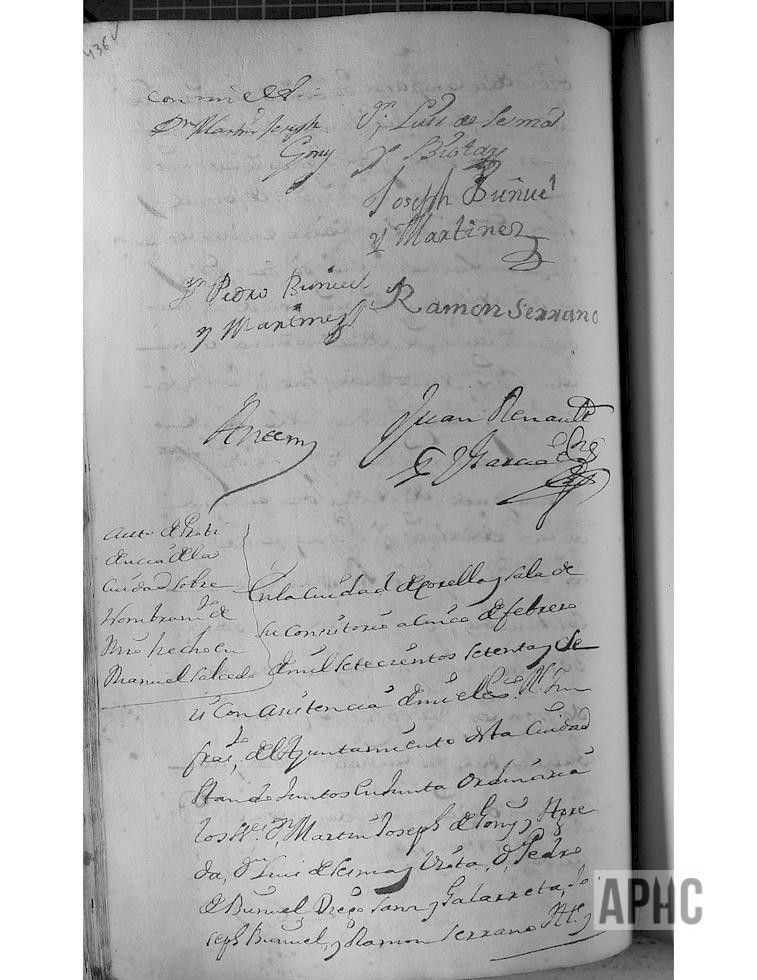 436
con mi el S.
Dn Martin Joseph
Gony
Dn Luis de Sesma
y Biotay
Joseph Buñuel
y Martinez
Dn Pedro Buñuel
y Martinez
Ramon Serrano
Juan Renault
y Garcia
Auto de
dencia de la
Ciudad sobre
Nombram.to de
Mro hecho en
Manuel Salcedo
En la Ciudad de Corella y Sala de
su Consultorio a cinco de febrero
de mil setecientos setenta y se
is con asistencia de mi el
del Ayuntamiento desta Ciudad
stando Juntos en Junta Ordinaria
los Ss. Dn Martin Joseph de Goni y
da, Dn Luis de Sesma y Viota, Dn Pedro
de Buñuel, Diego Sanz y Galarreta, Jo
seph Buñuel, y Ramon Serrano
APHC